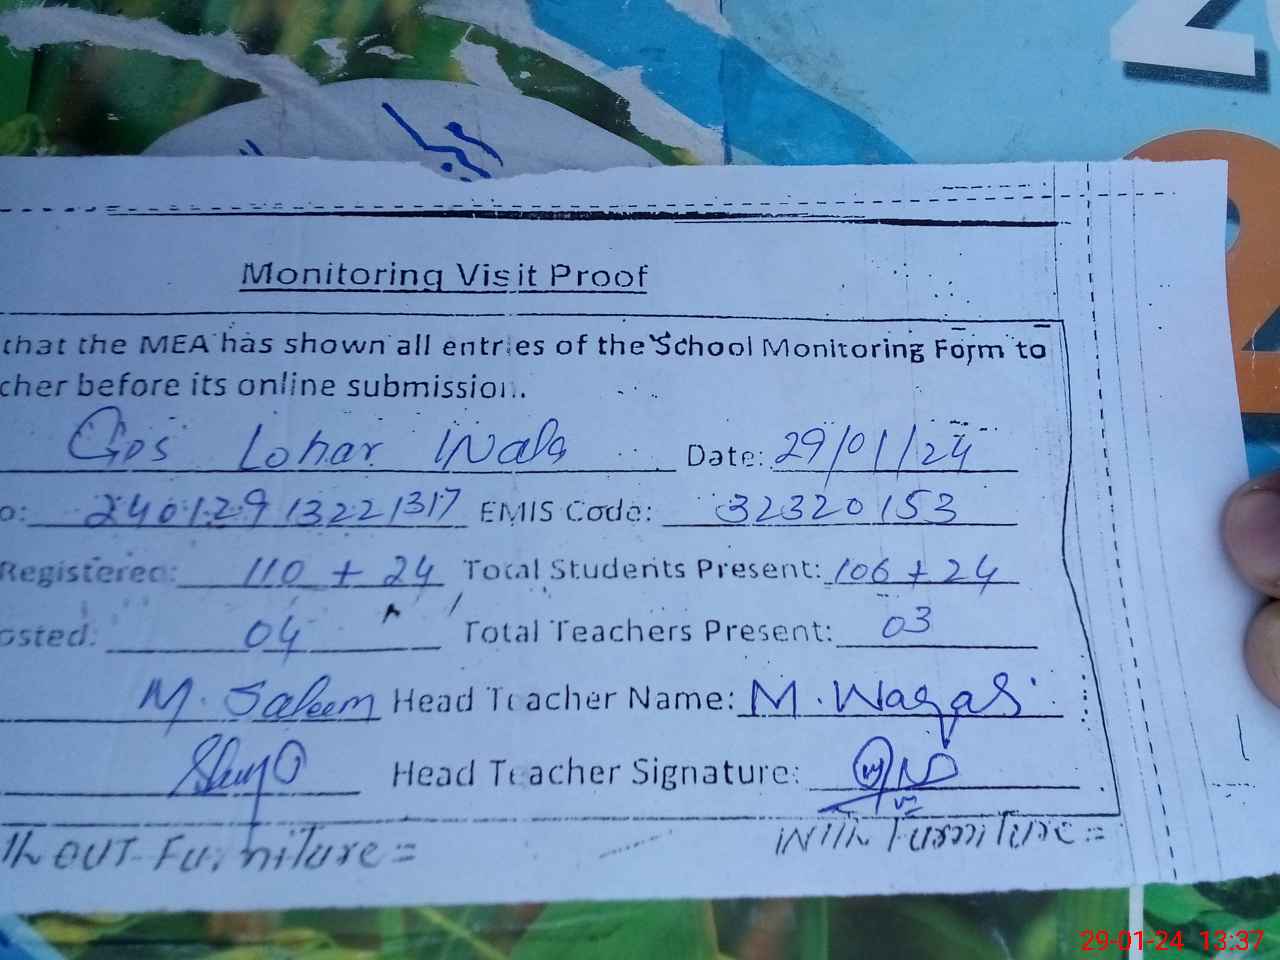 Monitoring Visit Proof
that the MEA has shown all entries of the School Monitoring Form to
cher before its online submission.
Gps Lohar Wala Date: 29/01/24
o: 24012913221317 EMIS Code: 32320153
Registered: 110 + 24 Total Students Present: 106 + 24
osted: 04 Total Teachers Present: 03
M. Saleem Head Teacher Name: M. Waqas
Head Teacher Signature:
th OUT Furniture = With Furniture =
29-01-24 13:37